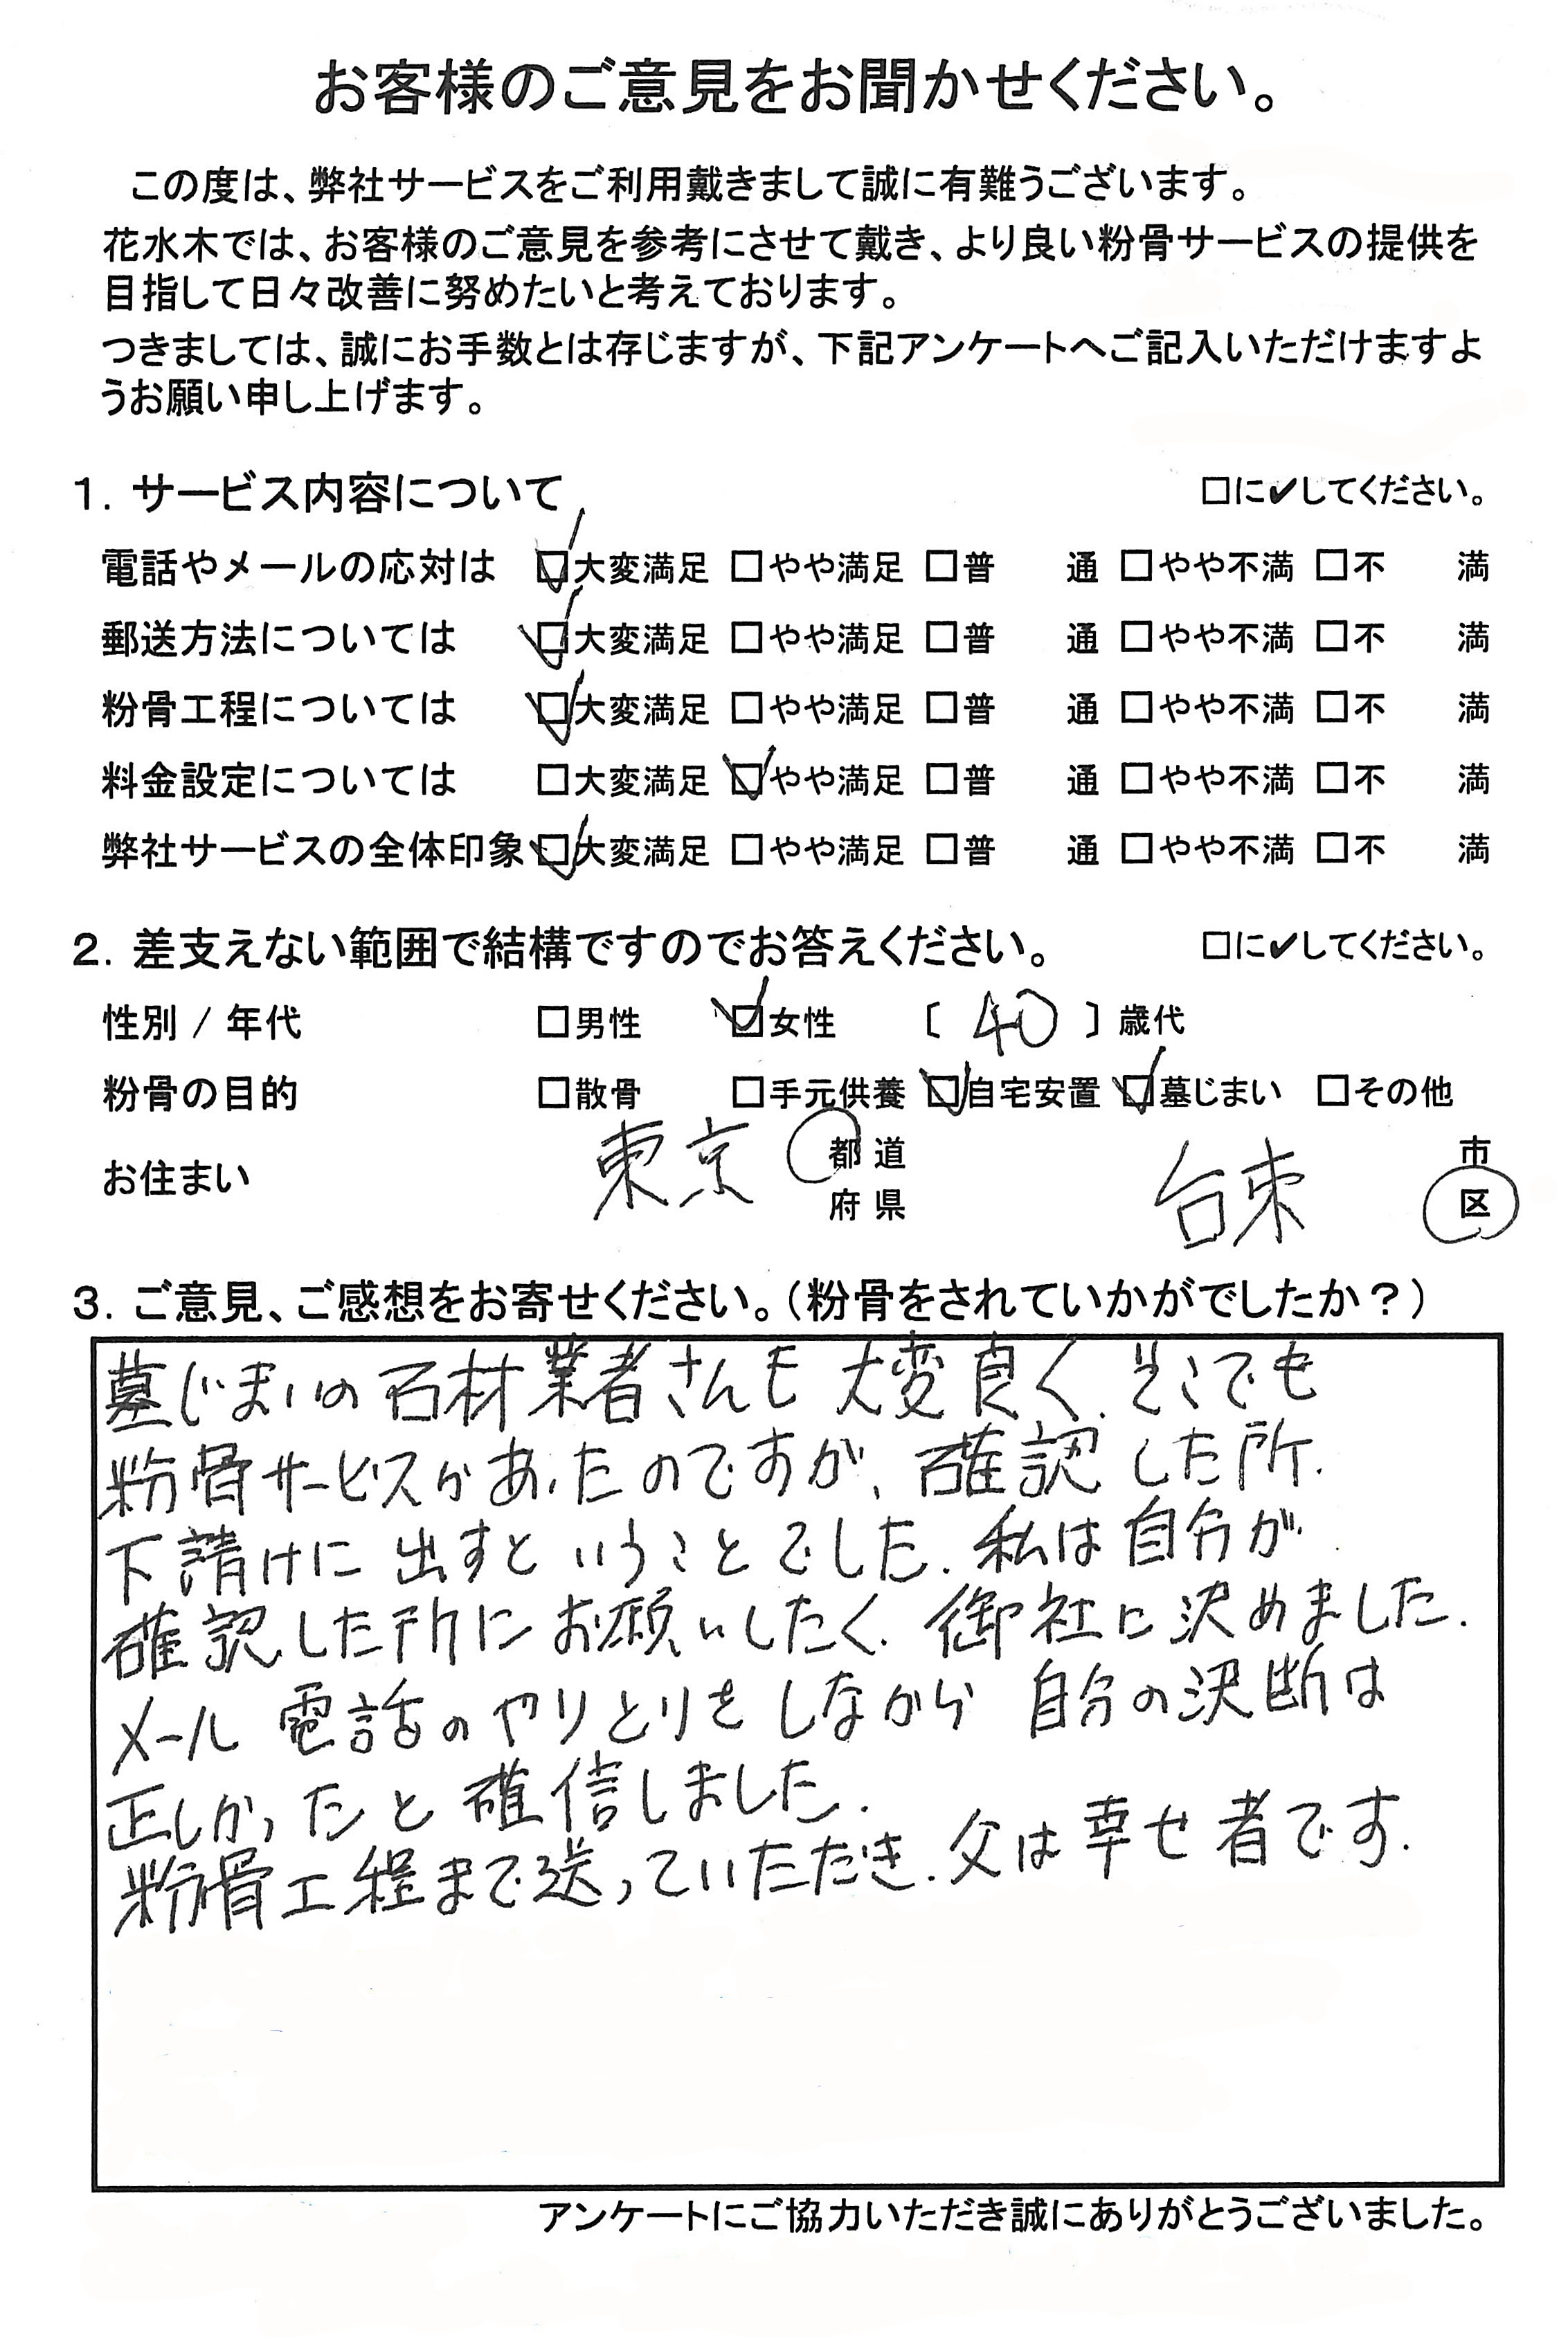 お客様のご意見をお聞かせください。
この度は、弊社サービスをご利用戴きまして誠に有難うございます。
花水木では、お客様のご意見を参考にさせて戴き、より良い粉骨サービスの提供を
目指して日々改善に努めたいと考えております。
つきましては、誠にお手数とは存じますが、下記アンケートへご記入いただけますよ
うお願い申し上げます。
1. サービス内容について □に✔してください。
電話やメールの応対は ☑大変満足 □やや満足 □普 通 □やや不満 □不 満
郵送方法については ☑大変満足 □やや満足 □普 通 □やや不満 □不 満
粉骨工程については ☑大変満足 □やや満足 □普 通 □やや不満 □不 満
料金設定については □大変満足 ☑やや満足 □普 通 □やや不満 □不 満
弊社サービスの全体印象 ☑大変満足 □やや満足 □普 通 □やや不満 □不 満
2. 差支えない範囲で結構ですのでお答えください。 □に✔してください。
性別 / 年代 □男性 ☑女性 〔 40 〕歳代
粉骨の目的 □散骨 □手元供養 ☑自宅安置 ☑墓じまい □その他
お住まい 東京 都道府県 台東 市区
3. ご意見、ご感想をお寄せください。（粉骨をされていかがでしたか？）
墓じまいの石材業者さんも大変良く、そこでも
粉骨サービスがあったのですが、確認した所、
下請けに出すということでした。私は自分が
確認した所にお願いしたく、御社に決めました。
メール 電話のやりとりをしながら 自分の決断は
正しかったと確信しました。
粉骨工程まで送っていただき、父は幸せ者です。
アンケートにご協力いただき誠にありがとうございました。